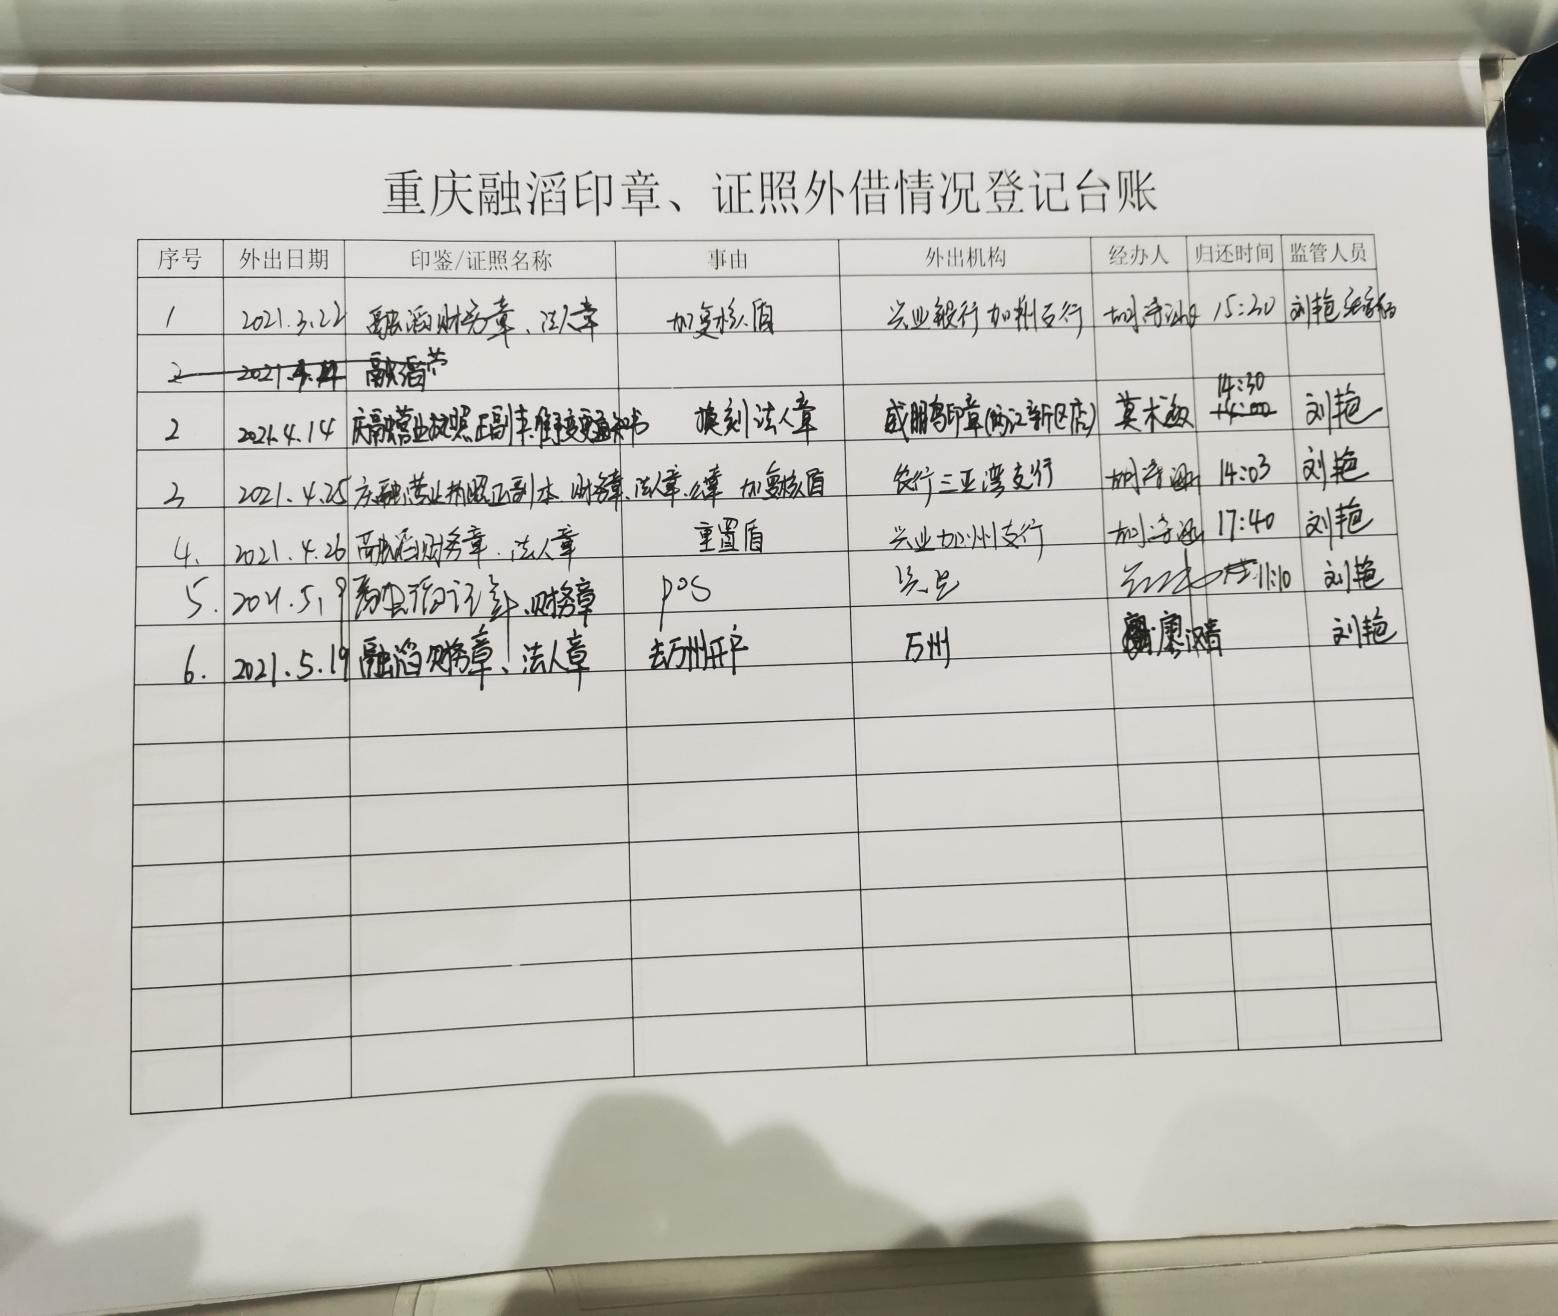 重庆融滔印章、证照外借情况登记台账
序号 外出日期 印鉴/证照名称 事由 外出机构 经办人 归还时间 监管人员
1 2021.3.22 融滔财务章、法人章 加复核盾 兴业银行加州支行 15:30 刘艳
2 融滔
2 2021.4.14 庆融营业执照正副本、准予变更通知书 换刻法人章 威鹏鸟印章(两江新区店) 莫术敏 14:30 14:00 刘艳
3 2021.4.25 庆融营业执照正副本、财务章、法人章、公章 加复核盾 农行三亚湾支行 14:03 刘艳
4. 2021.4.26 融滔财务章、法人章 重置盾 兴业加州支行 17:40 刘艳
5. 2021.5.19 财务章 pos 11:10 刘艳
6. 2021.5.19 融滔财务章、法人章 去万州开户 万州 廖汉青 刘艳